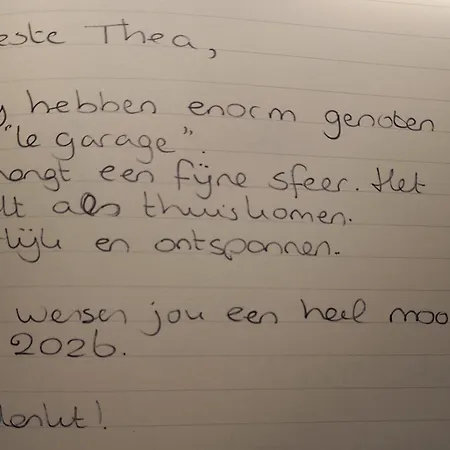 este Thea,
hebben enorm genoten
"le garage".
hangt een fijne sfeer. Het
lt als thuiskomen.
lijk en ontspannen.
wensen jou een heel moo
2026.
denkt!